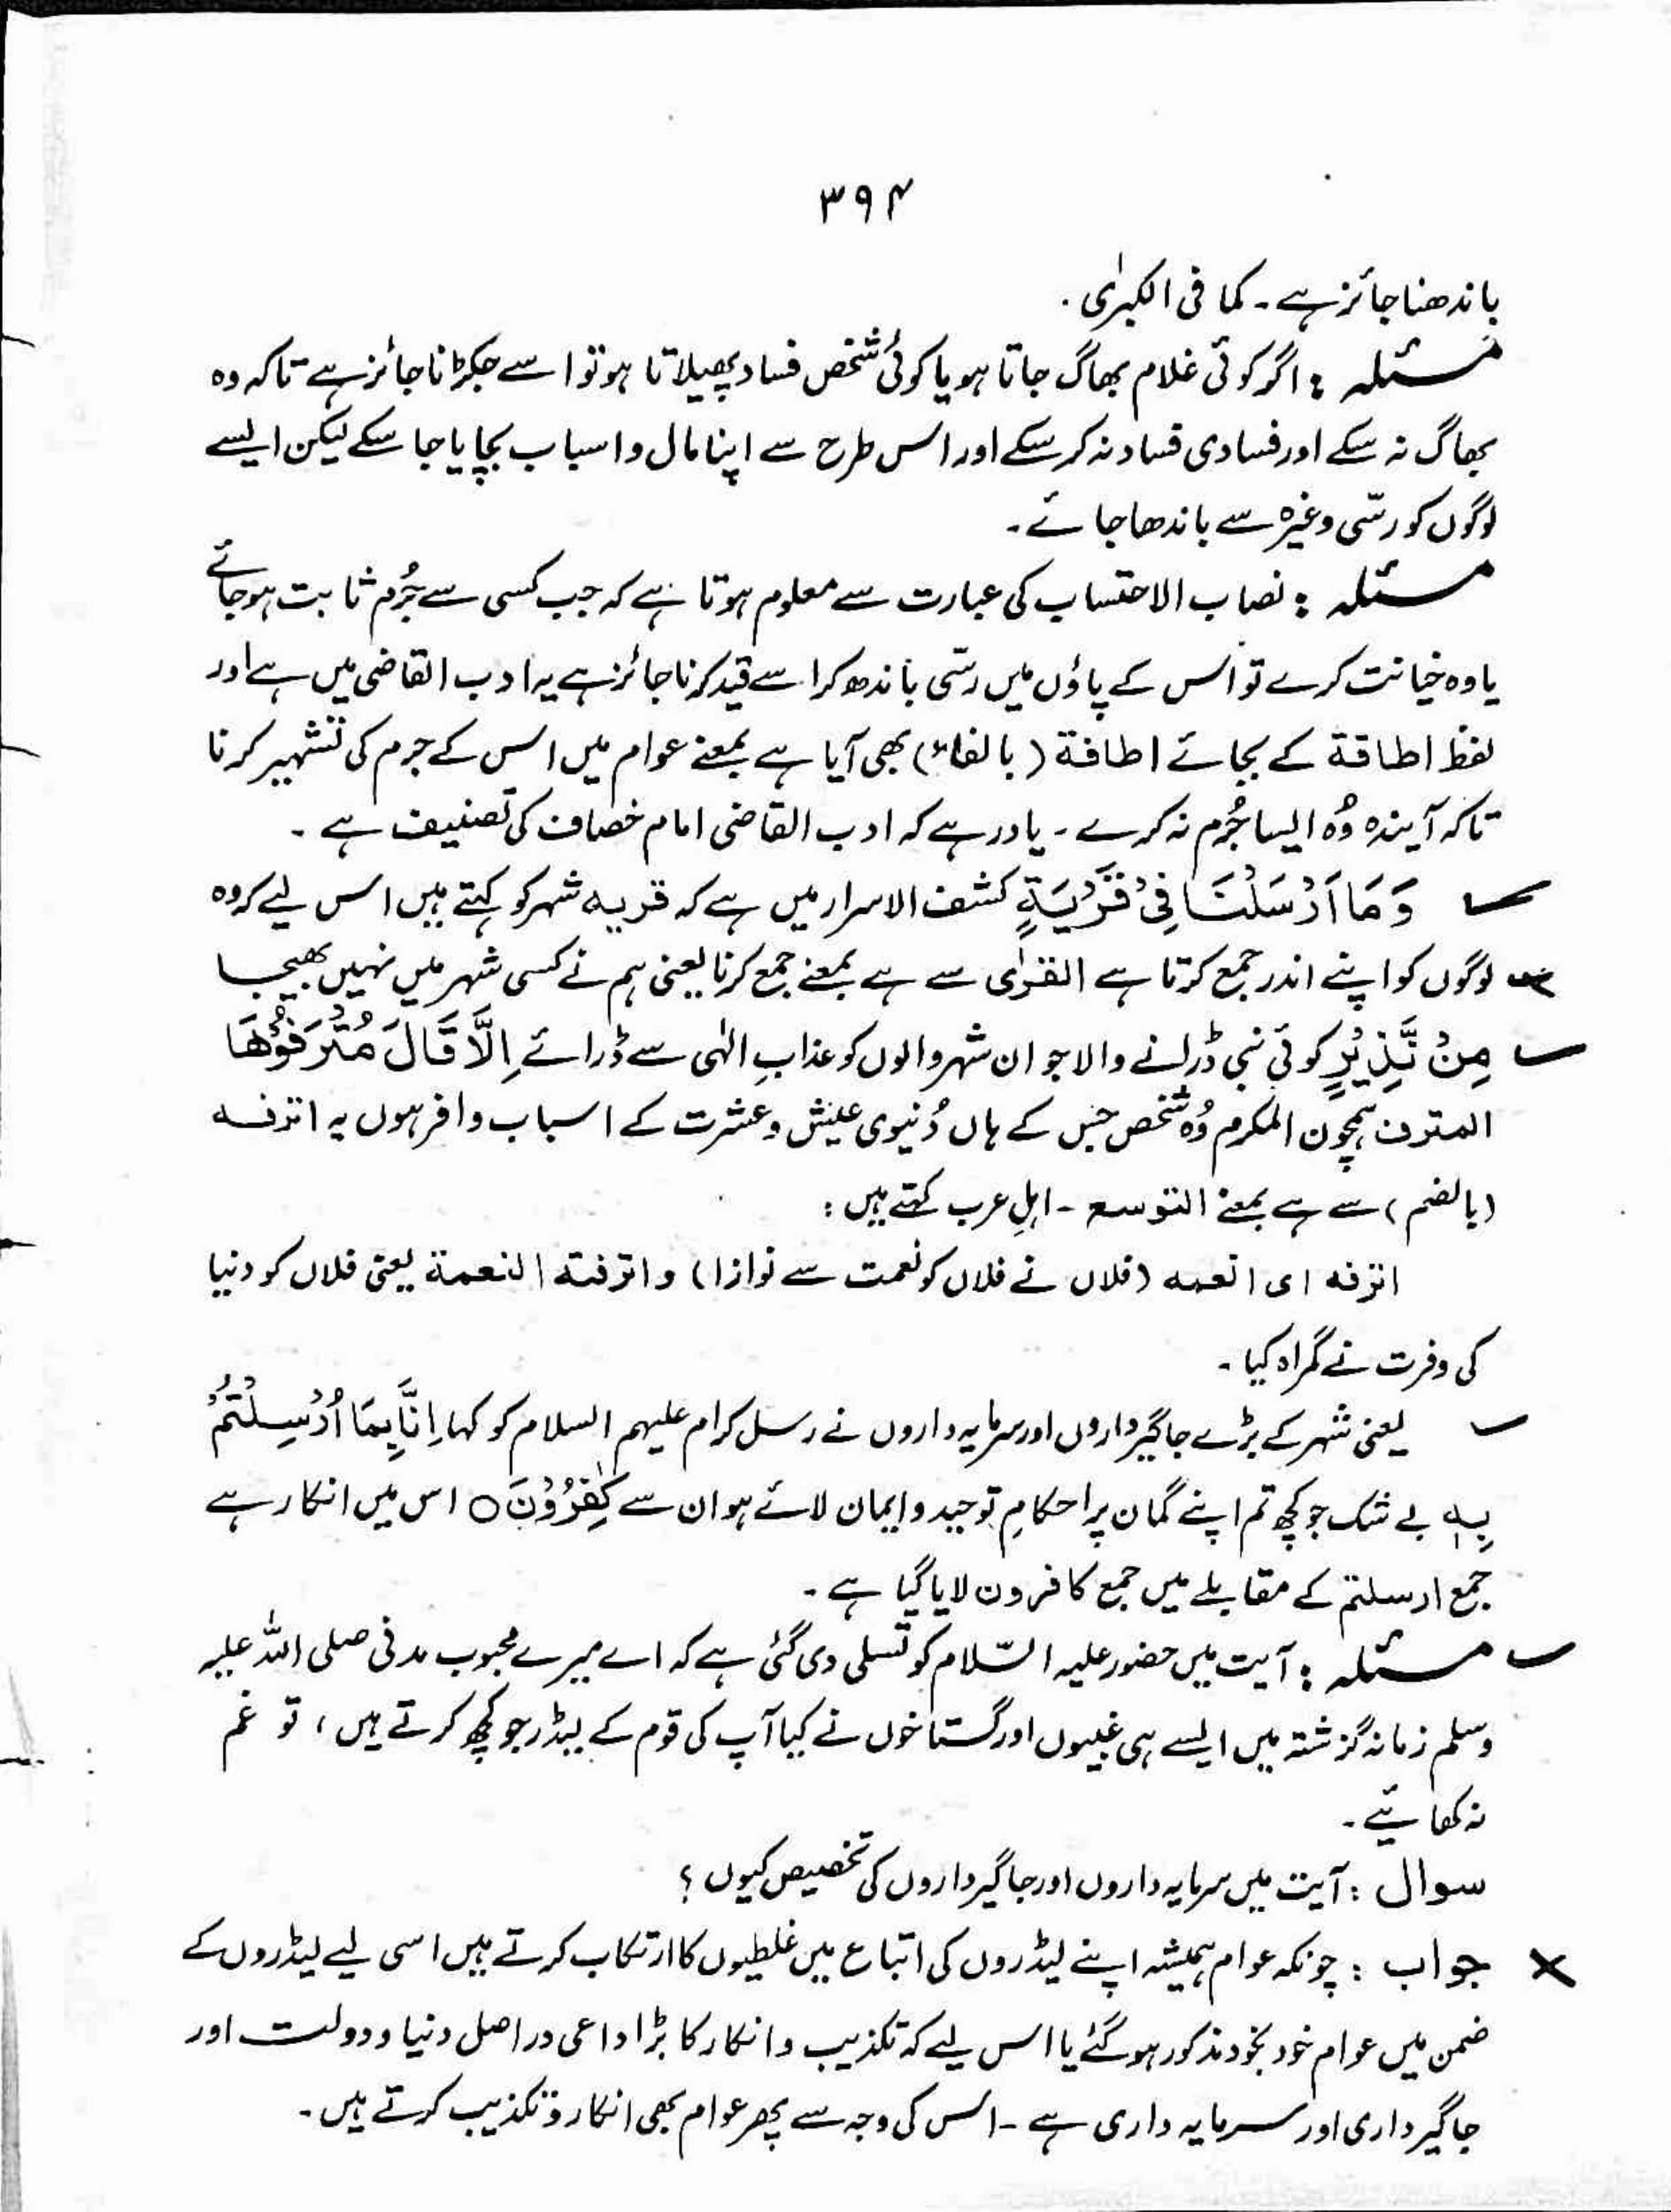 ۳۹۴
باندھنا جائز ہے۔ کما فی الکبرٰی۔
مسئلہ : اگر کوئی غلام بھاگ جاتا ہو یا کوئی شخص فساد پھیلاتا ہو تو اسے جکڑانا جائز ہے تاکہ وہ
بھاگ نہ سکے اور فسادی فساد نہ کر سکے اور اس طرح سے اپنا مال و اسباب بچایا جا سکے لیکن ایسے
لوگوں کو رسّی وغیرہ سے باندھا جائے۔
مسئلہ : نصاب الاحتساب کی عبارت سے معلوم ہوتا ہے کہ جب کسی سے جُرم ثابت ہو جائے
یا وہ خیانت کرے تو اس کے پاؤں میں رسّی باندھ کر اسے قید کرنا جائز ہے یہ ادب القاضی میں ہے اور
لفظ اطاقة کے بجائے اطافة (بالفاء) بھی آیا ہے بمعنے عوام میں اس کے جرم کی تشہیر کرنا
تاکہ آیندہ وُہ ایسا جُرم نہ کرے۔ یاد رہے کہ ادب القاضی امام خصاف کی تصنیف ہے۔
وَمَا اَرْسَلْنَا فِیْ قَرْیَةٍ کشف الاسرار میں ہے کہ قریہ شہر کو کہتے ہیں اس لیے کہ وہ
لوگوں کو اپنے اندر جمع کرتا ہے القرٰی سے ہے بمعنے جمع کرنا یعنی ہم نے کسی شہر میں نہیں بھیجا
مِنْ نَّذِیْرٍ کوئی نبی ڈرانے والا جو ان شہر والوں کو عذابِ الٰہی سے ڈرائے اِلَّا قَالَ مُتْرَفُوْهَا
المترف ہمچون المکرم وُہ شخص جس کے ہاں دُنیوی عیش و عشرت کے اسباب وافر ہوں یہ اترفہ
(بالضم) سے ہے بمعنے التوسع۔ اہلِ عرب کہتے ہیں :
اترفه ای انعمه (فلاں نے فلاں کو نعمت سے نوازا) و اترفتة النعمة یعنی فلاں کو دنیا
کی وفرت نے گمراہ کیا۔
یعنی شہر کے بڑے جاگیرداروں اور سرمایہ داروں نے رسل کرام علیہم السلام کو کہا اِنَّا بِمَا اُرْسِلْتُمْ
بِهٖ بے شک جو کچھ تم اپنے گمان پر احکامِ توحید و ایمان لائے ہو ان سے کٰفِرُوْنَ ○ اس میں انکار ہے
جمع ارسلتم کے مقابلے میں جمع کافرون لایا گیا ہے۔
مسئلہ : آیت میں حضور علیہ السّلام کو تسلی دی گئی ہے کہ اے میرے محبوب مدنی صلی اللہ علیہ
وسلم زمانہ گزشتہ میں ایسے ہی غبیوں اور گستاخوں نے کیا آپ کی قوم کے لیڈر جو کچھ کرتے ہیں، تو غم
نہ کھائیے۔
سوال : آیت میں سرمایہ داروں اور جاگیرداروں کی تخصیص کیوں ؟
جواب : چونکہ عوام ہمیشہ اپنے لیڈروں کی اتباع میں غلطیوں کا ارتکاب کرتے ہیں اسی لیے لیڈروں کے
ضمن میں عوام خود بخود مذکور ہو گئے یا اس لیے کہ تکذیب و انکار کا بڑا داعی دراصل دنیا و دولت اور
جاگیرداری اور سرمایہ داری ہے۔ اس کی وجہ سے پھر عوام بھی انکار و تکذیب کرتے ہیں۔